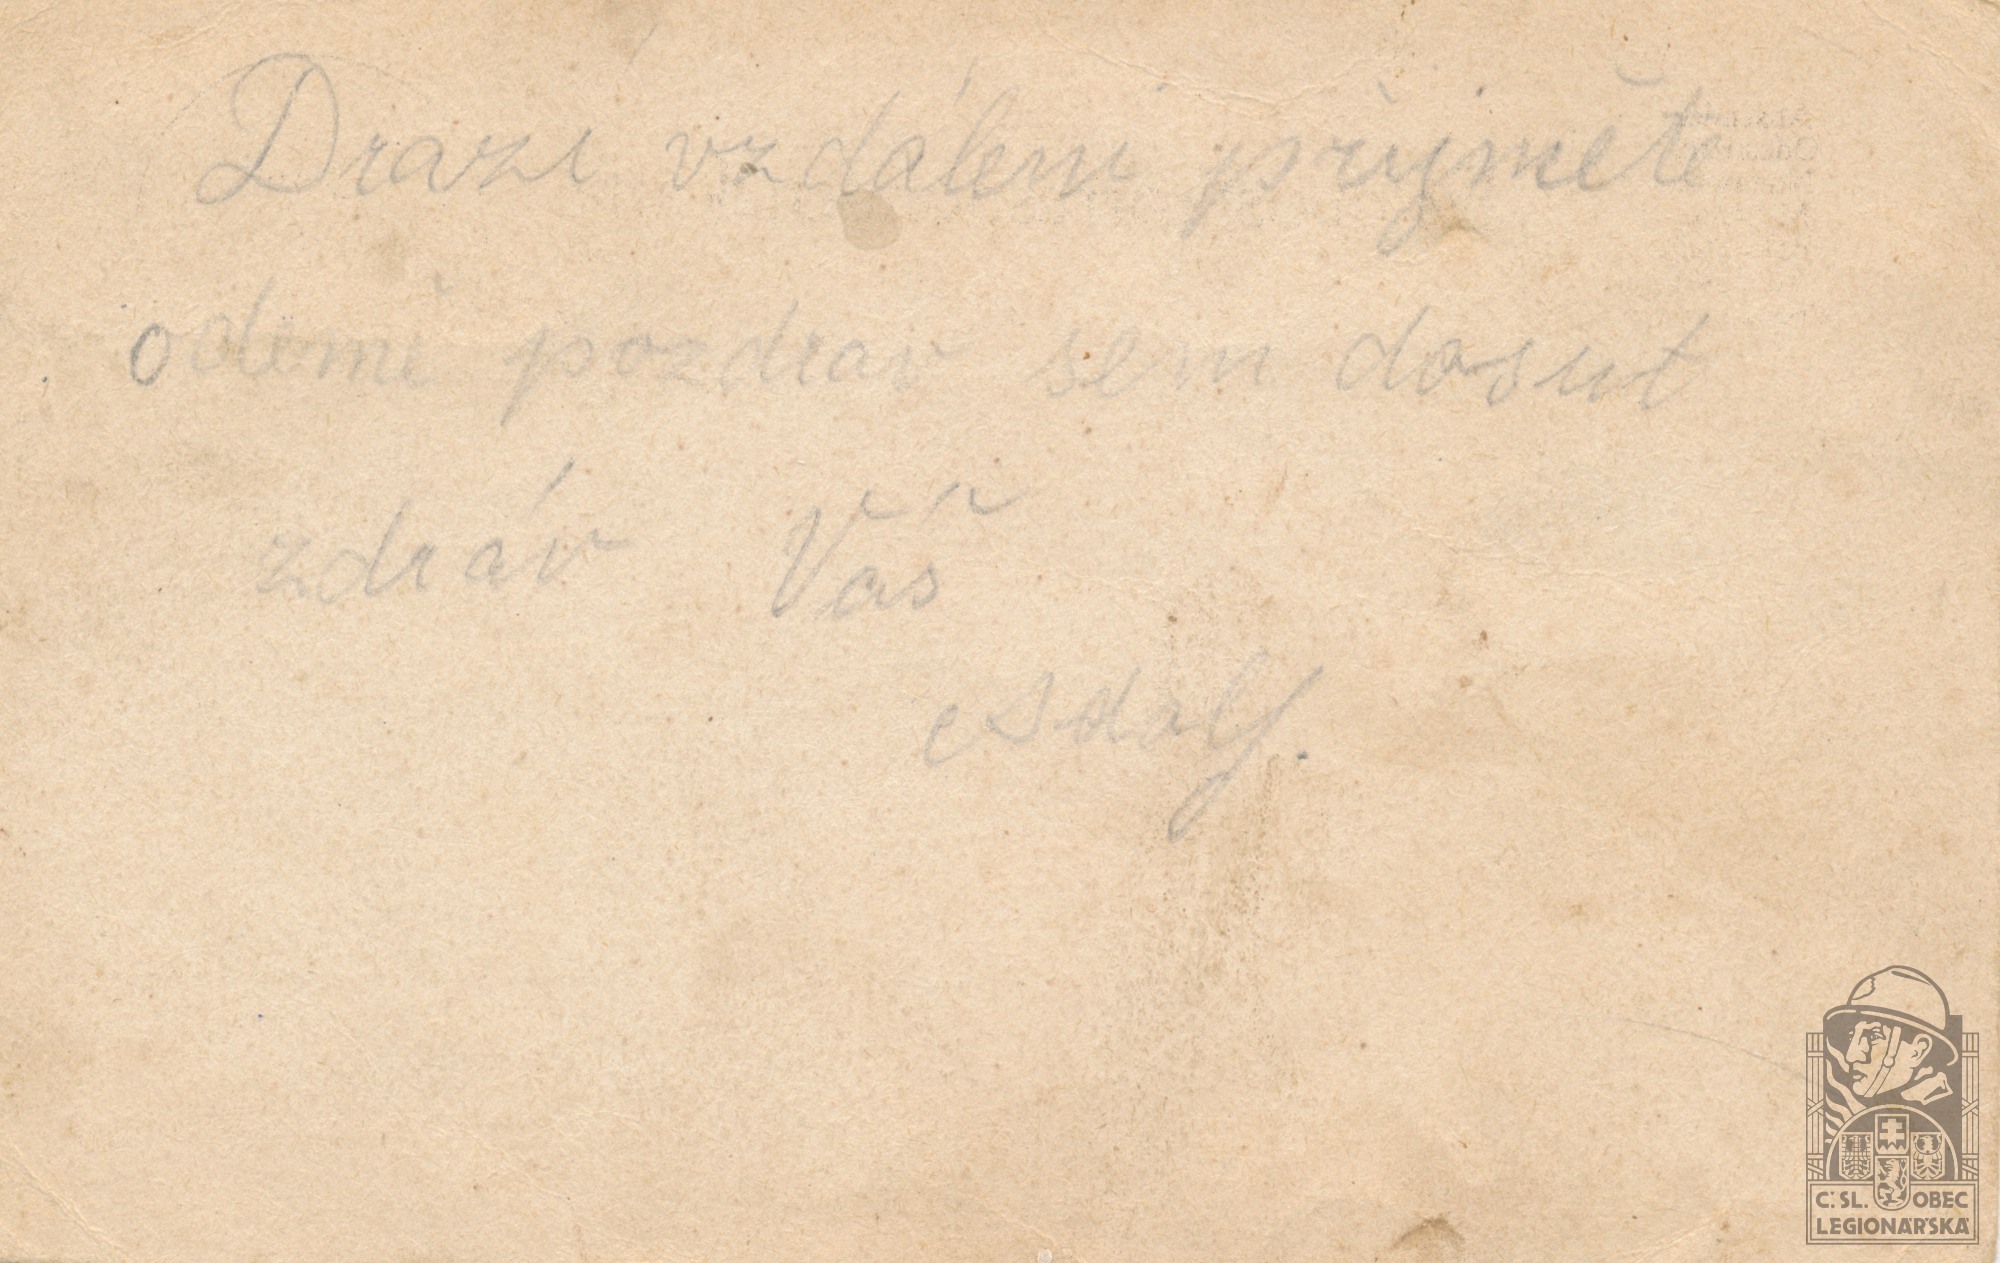 Drazí vzdálení přijměte
odemě pozdrav sem dosut
zdráv Váš
Adolf.
Č.SL. OBEC
LEGIONÁŘSKÁ